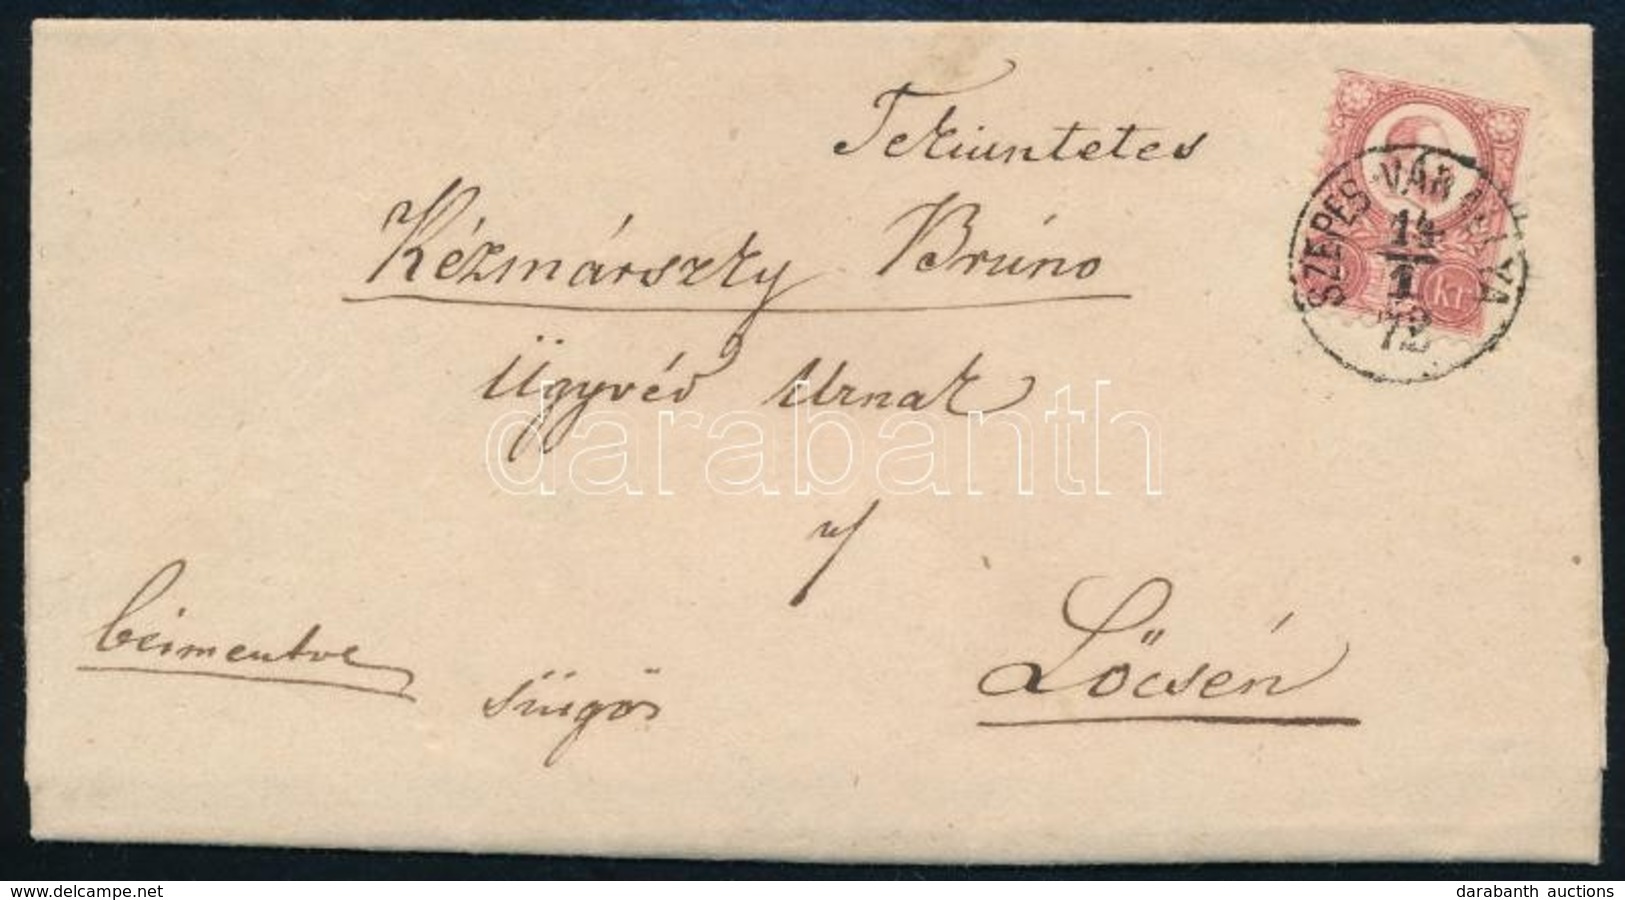 Tekiuntetes
Kézmárszky Brúno
Ügyvéd Urnak
Lőcsén
bérmentve
sürgős
SZEPES-VÁRALLYA
14
1
72
Kr
darabanth
delcampe.net
darabanth auctions